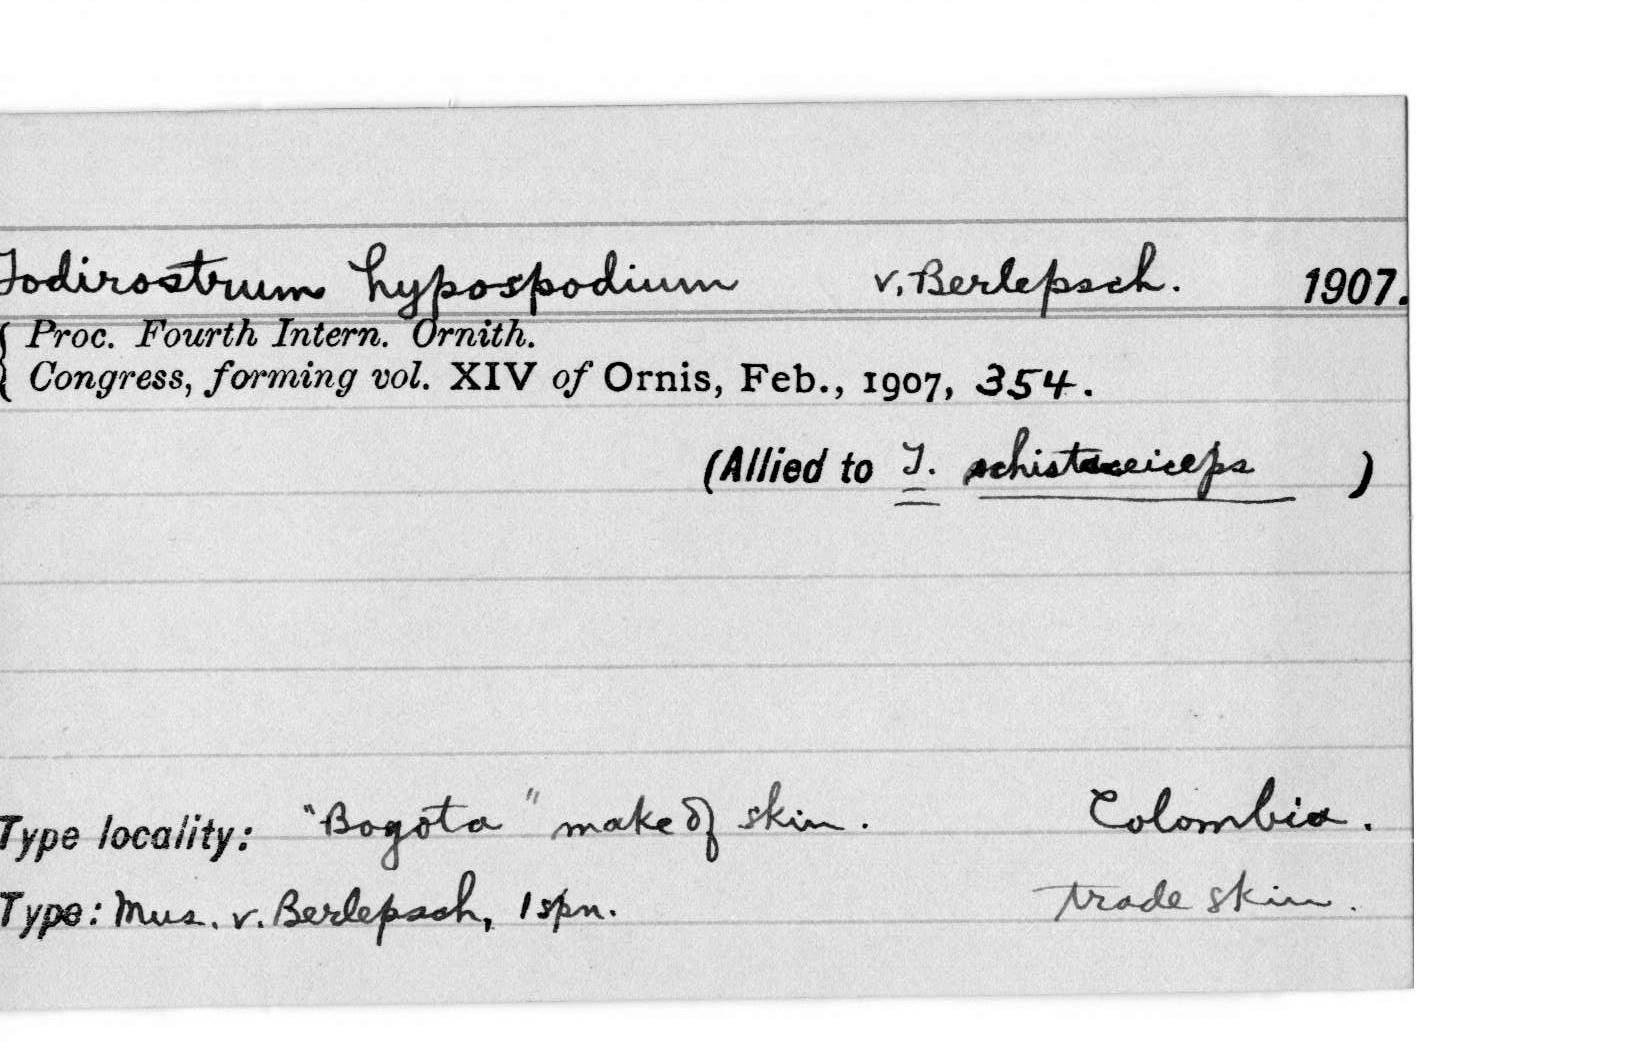 Todirostrum hypospodium v. Berlepsch. 1907.
{ Proc. Fourth Intern. Ornith.
Congress, forming vol. XIV of Ornis, Feb., 1907, 354.
(Allied to T. schistaceiceps )
Type locality: "Bogota" make of skin. Colombia.
Type: Mus. v. Berlepsch, 1 spn. trade skin.